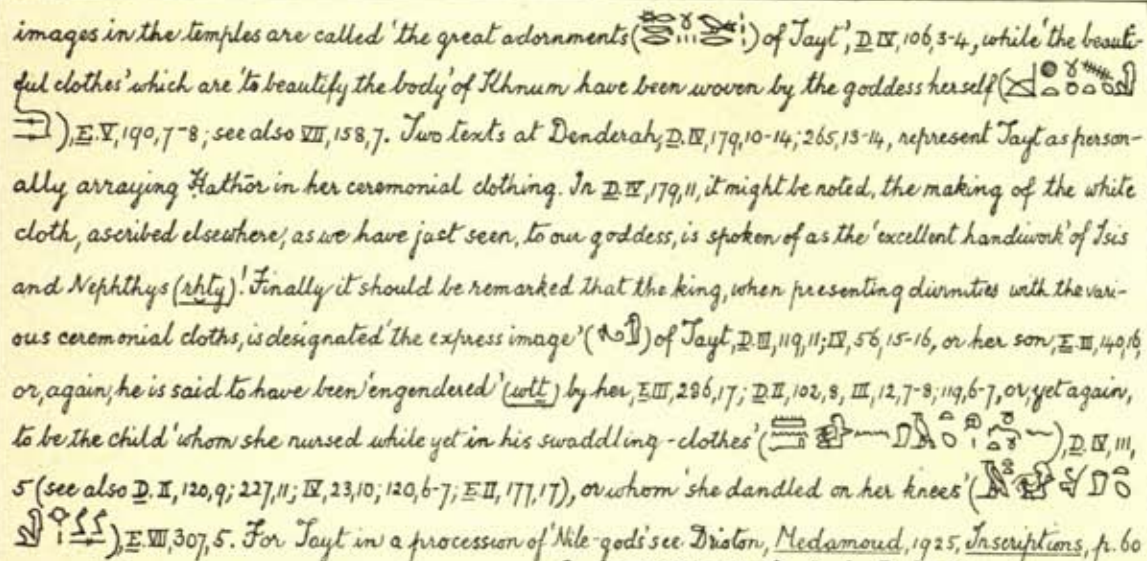 images in the temples are called 'the great adornments () of Tayt', D. IV, 106, 3-4, while 'the beauti-
ful clothes' which are 'to beautify the body' of Khnum have been woven by the goddess herself (
), E. V, 190, 7-8; see also VII, 158, 7. Two texts at Denderah, D. IV, 179, 10-14; 265, 13-14, represent Tayt as person-
ally arraying Hathōr in her ceremonial clothing. In D. IV, 179, 11, it might be noted, the making of the white
cloth, ascribed elsewhere, as we have just seen, to our goddess, is spoken of as the 'excellent handiwork' of Isis
and Nephthys (rḫty)! Finally it should be remarked that the king, when presenting divinities with the vari-
ous ceremonial cloths, is designated 'the express image' () of Tayt, D. III, 119, 11; IV, 56, 15-16, or her son, E. III, 140, 16
or, again, he is said to have been 'engendered' (wtt) by her, E. III, 286, 17; D. II, 102, 8, III, 12, 7-8; 119, 6-7, or, yet again,
to be the child 'whom she nursed while yet in his swaddling-clothes' (), D. IV, 111,
5 (see also D. II, 120, 9; 227, 11; IV, 23, 10; 120, 6-7; E. II, 177, 17), or whom 'she dandled on her knees' (
), E. VII, 307, 5. For Tayt in a procession of 'Nile-gods' see Drioton, Medamoud, 1925, Inscriptions, p. 60